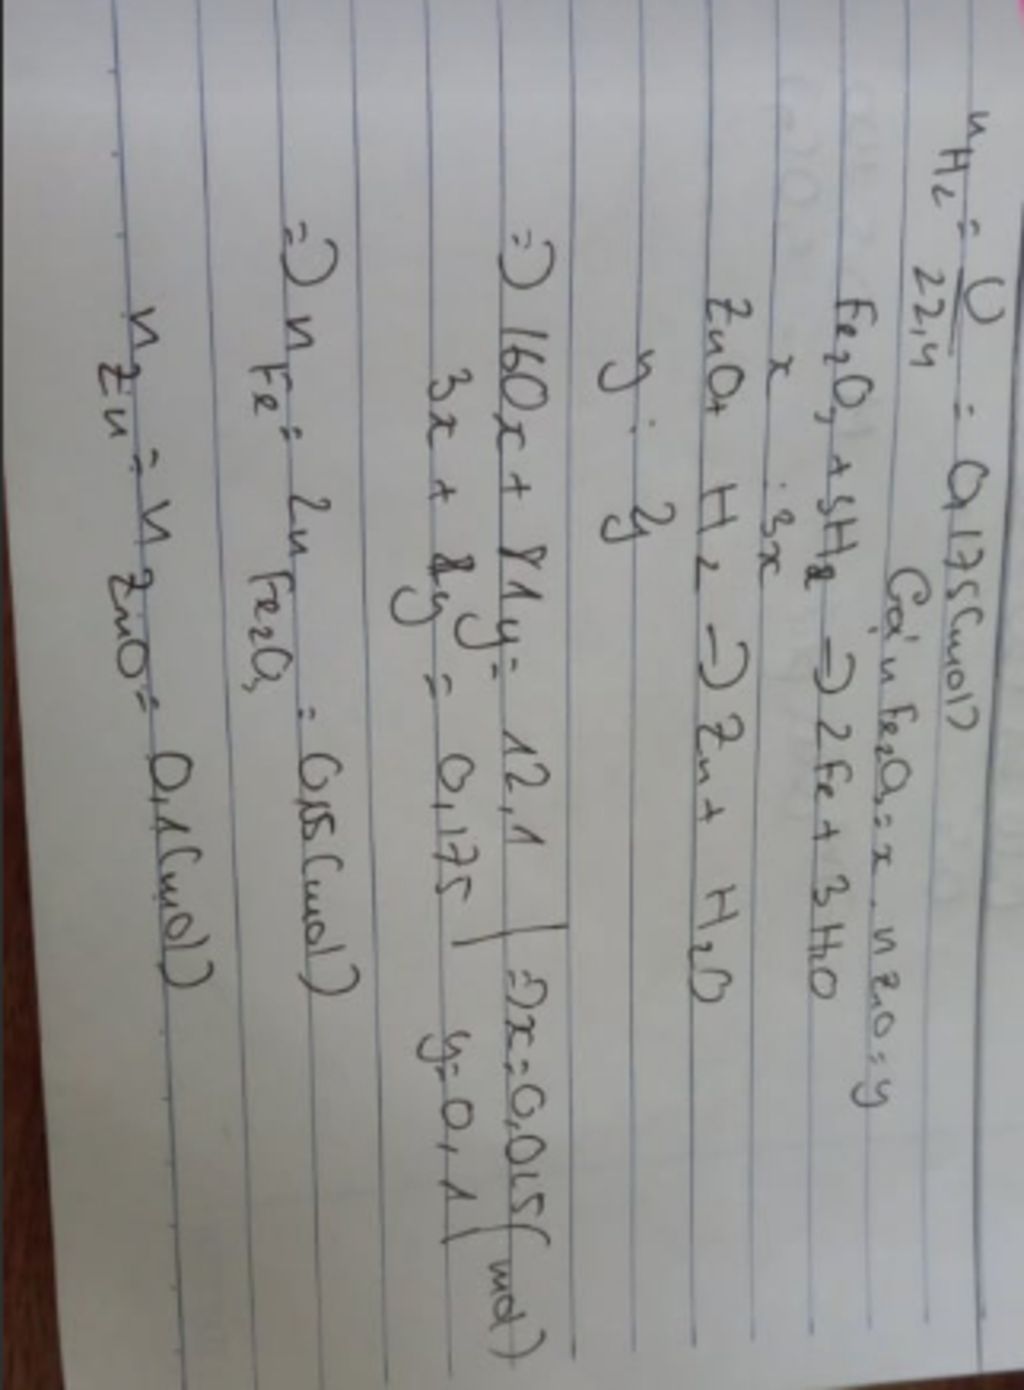 nH₂ = U/22,4 = 0,175(mol)
Gọi nFe₂O₃ = x. nZnO = y
Fe₂O₃ + 3H₂ => 2Fe + 3H₂O
x : 3x
ZnO + H₂ => Zn + H₂O
y : y
=> 160x + 81y = 12,1 | => x = 0,015(mol)
3x + y = 0,175 | y = 0,1
=> nFe = 2nFe₂O₃ = 0,15(mol)
nZn = nZnO = 0,1(mol)